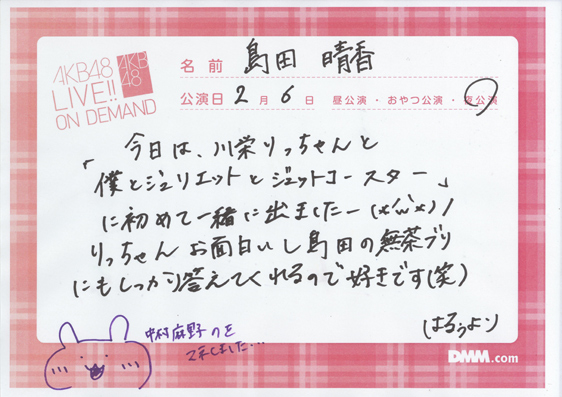 AKB48
LIVE!!
ON DEMAND
AKB
48
名前 島田 晴香
公演日 2月6日 昼公演・おやつ公演・夜公演
今日は、川栄りっちゃんと
「僕とジュリエットとジェットコースター」
に初めて一緒に出ましたー(x'ω'x)/
りっちゃんお面白いし島田の無茶ブリ
にもしっかり答えてくれるので好きです(笑)
はるぅよン
中村麻野のを
マネしました...
DMM.com